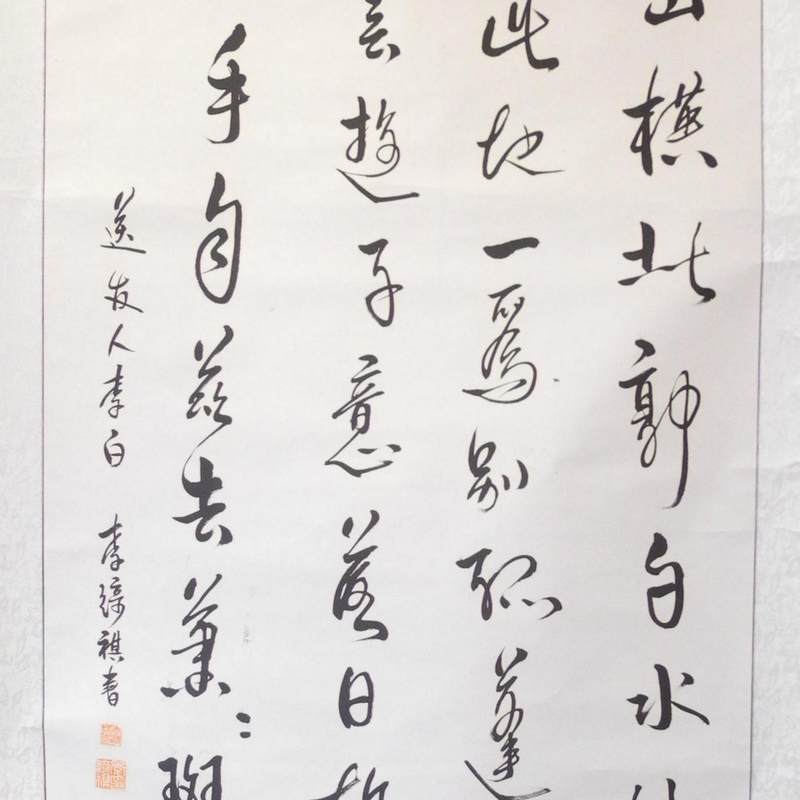 山橫北郭白水
此地一為別孤蓬
雲遊子意落日故
手自茲去蕭〻班
送友人李白 李綺祺書